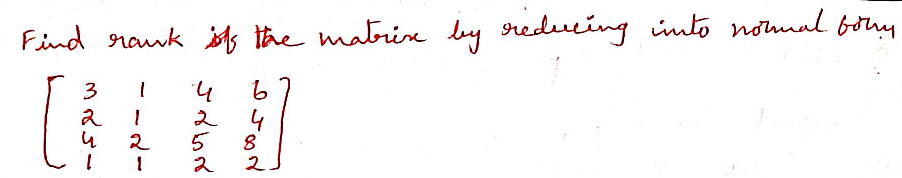 Find rank of the matrix by reducing into normal form
3 1 4 6
2 1 2 4
4 2 5 8
1 1 2 2